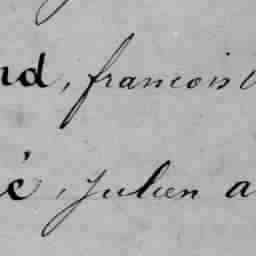 nd, francois
é, Julien a